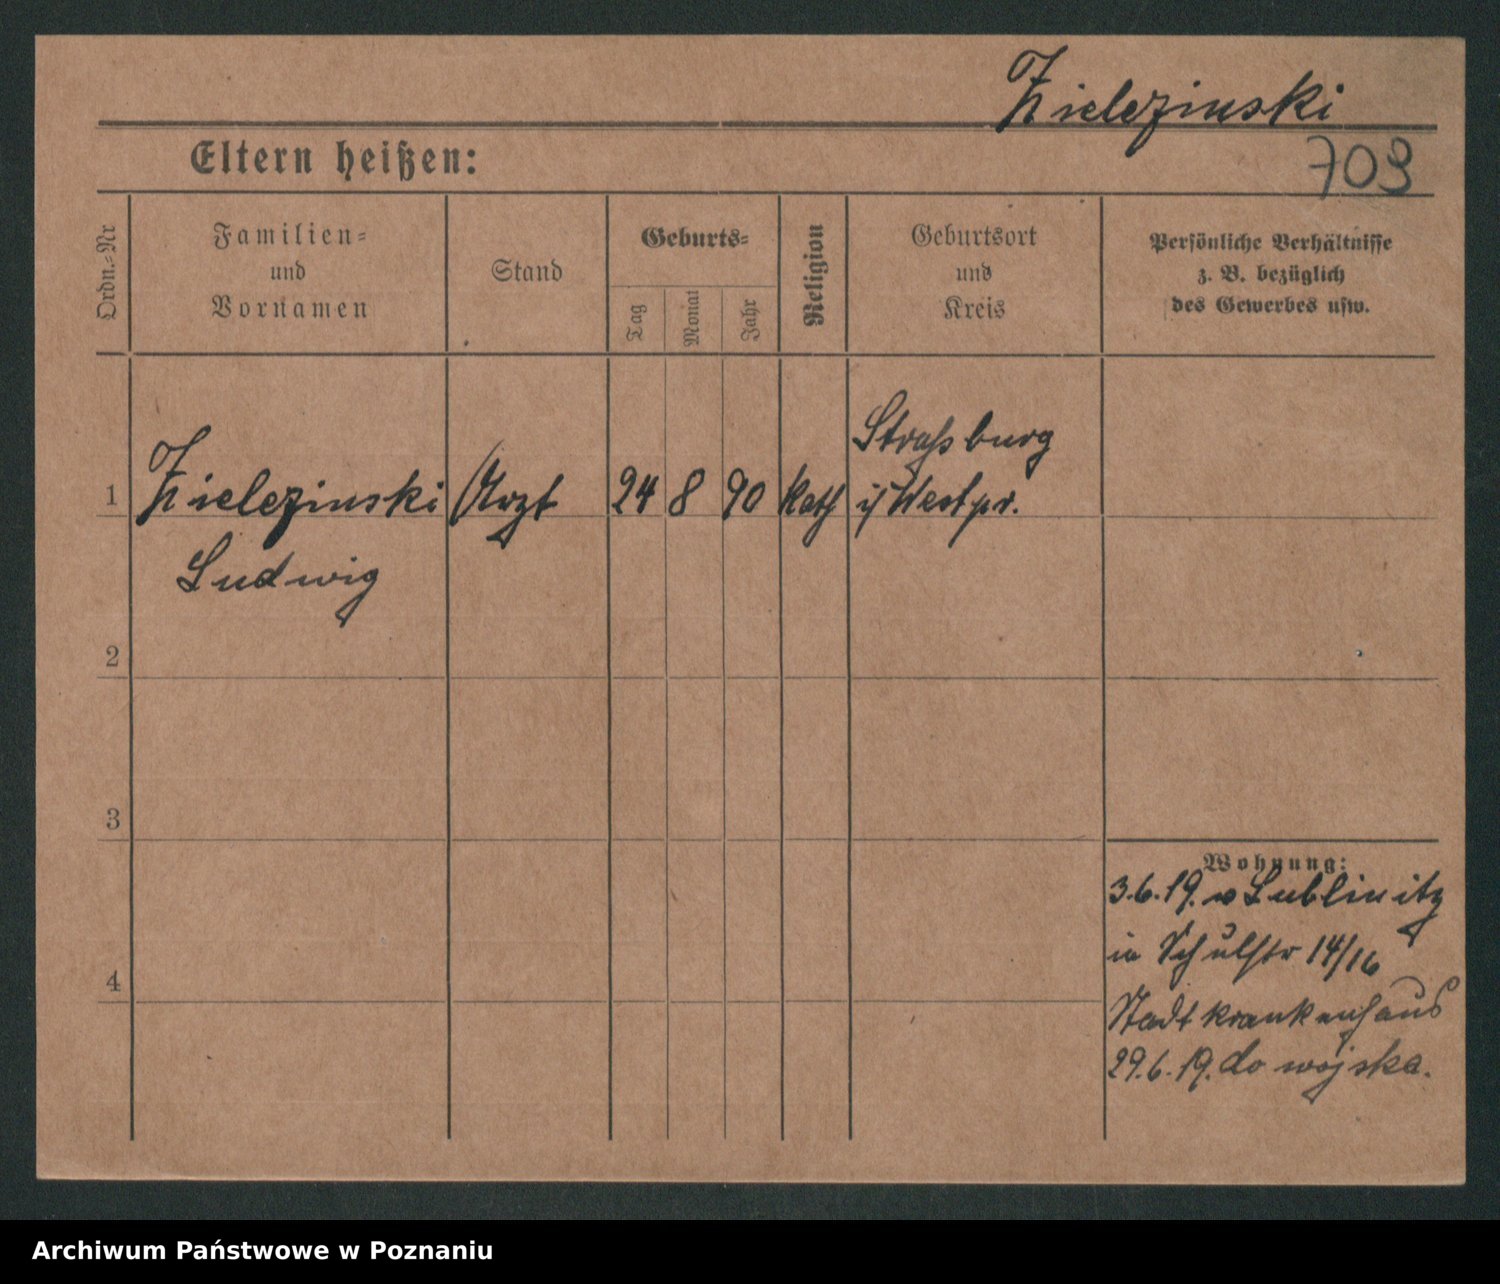 Zielezinski
Eltern heißen:
709
Ordn.-Nr
Familien-
und
Vornamen
Stand
Geburts-
Tag
Monat
Jahr
Religion
Geburtsort
und
Kreis
Persönliche Verhältnisse
z. B. bezüglich
des Gewerbes usw.
1
Zielezinski
Ludwig
Arzt
24
8
90
kath
Strassburg
i/ Westpr.
2
3
4
Wohnung:
3.6.19. v Lublinitz
in Schulstr 14/16
Stadtkrankenhaus
29.6.19. do wojska.
Archiwum Państwowe w Poznaniu